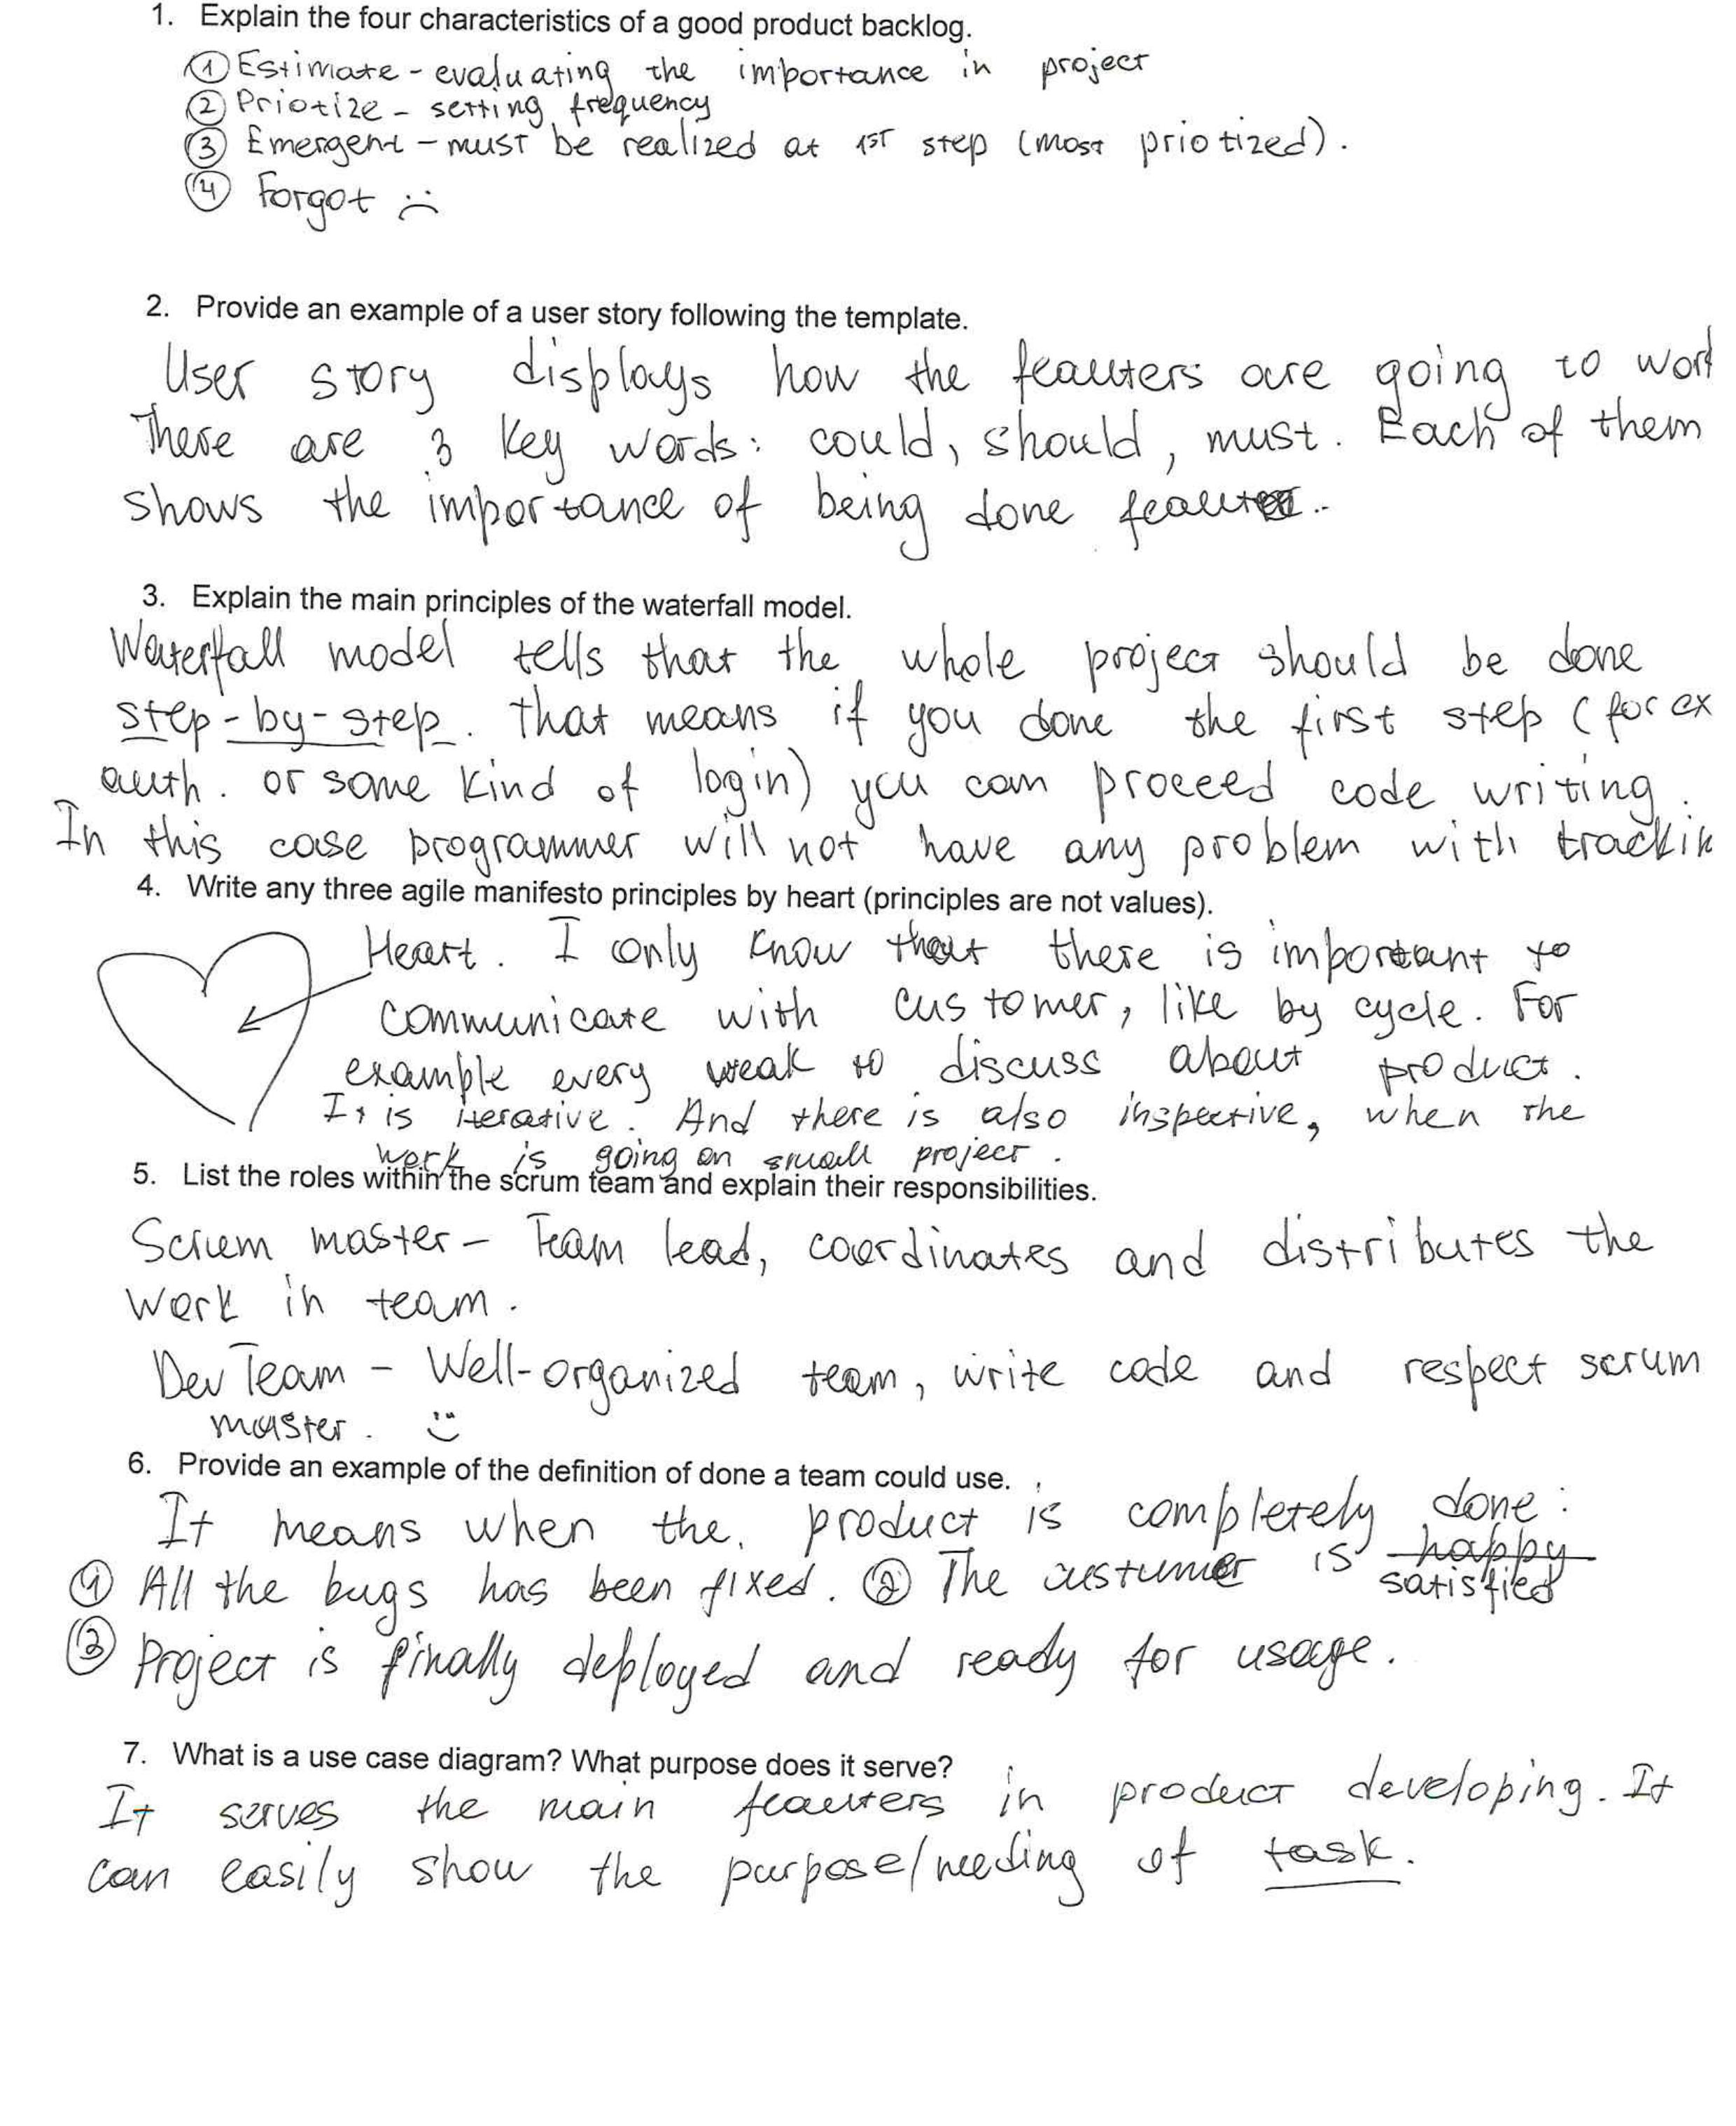 1. Explain the four characteristics of a good product backlog.
① Estimate - evaluating the importance in project
② Priotize - setting frequency
③ Emergent - must be realized at 1ST step (most priotized).
④ Forgot :(
2. Provide an example of a user story following the template.
User story displays how the feauters are going to work
There are 3 key words: could, should, must. Each of them
shows the importance of being done
3. Explain the main principles of the waterfall model.
Waterfall model tells that the whole project should be done
step-by-step. That means if you done the first step (for ex
auth. or some kind of login) you can proceed code writing.
In this case programmer will not have any problem with trackin
4. Write any three agile manifesto principles by heart (principles are not values).
Heart. I only know that there is important to
communicate with customer, like by cycle. For
example every weak to discuss about product.
It is iterative. And there is also inspective, when the
work is going on small project.
5. List the roles within the scrum team and explain their responsibilities.
Scrum master - Team lead, coordinates and distributes the
work in team.
Dev Team - Well-organized team, write code and respect scrum
master. :)
6. Provide an example of the definition of done a team could use.
It means when the product is completely done:
① All the bugs has been fixed. ② The custumer is happy
satisfied
③ Project is finally deployed and ready for usage.
7. What is a use case diagram? What purpose does it serve?
It serves the main feauters in product developing. It
can easily show the purpose/needing of task.